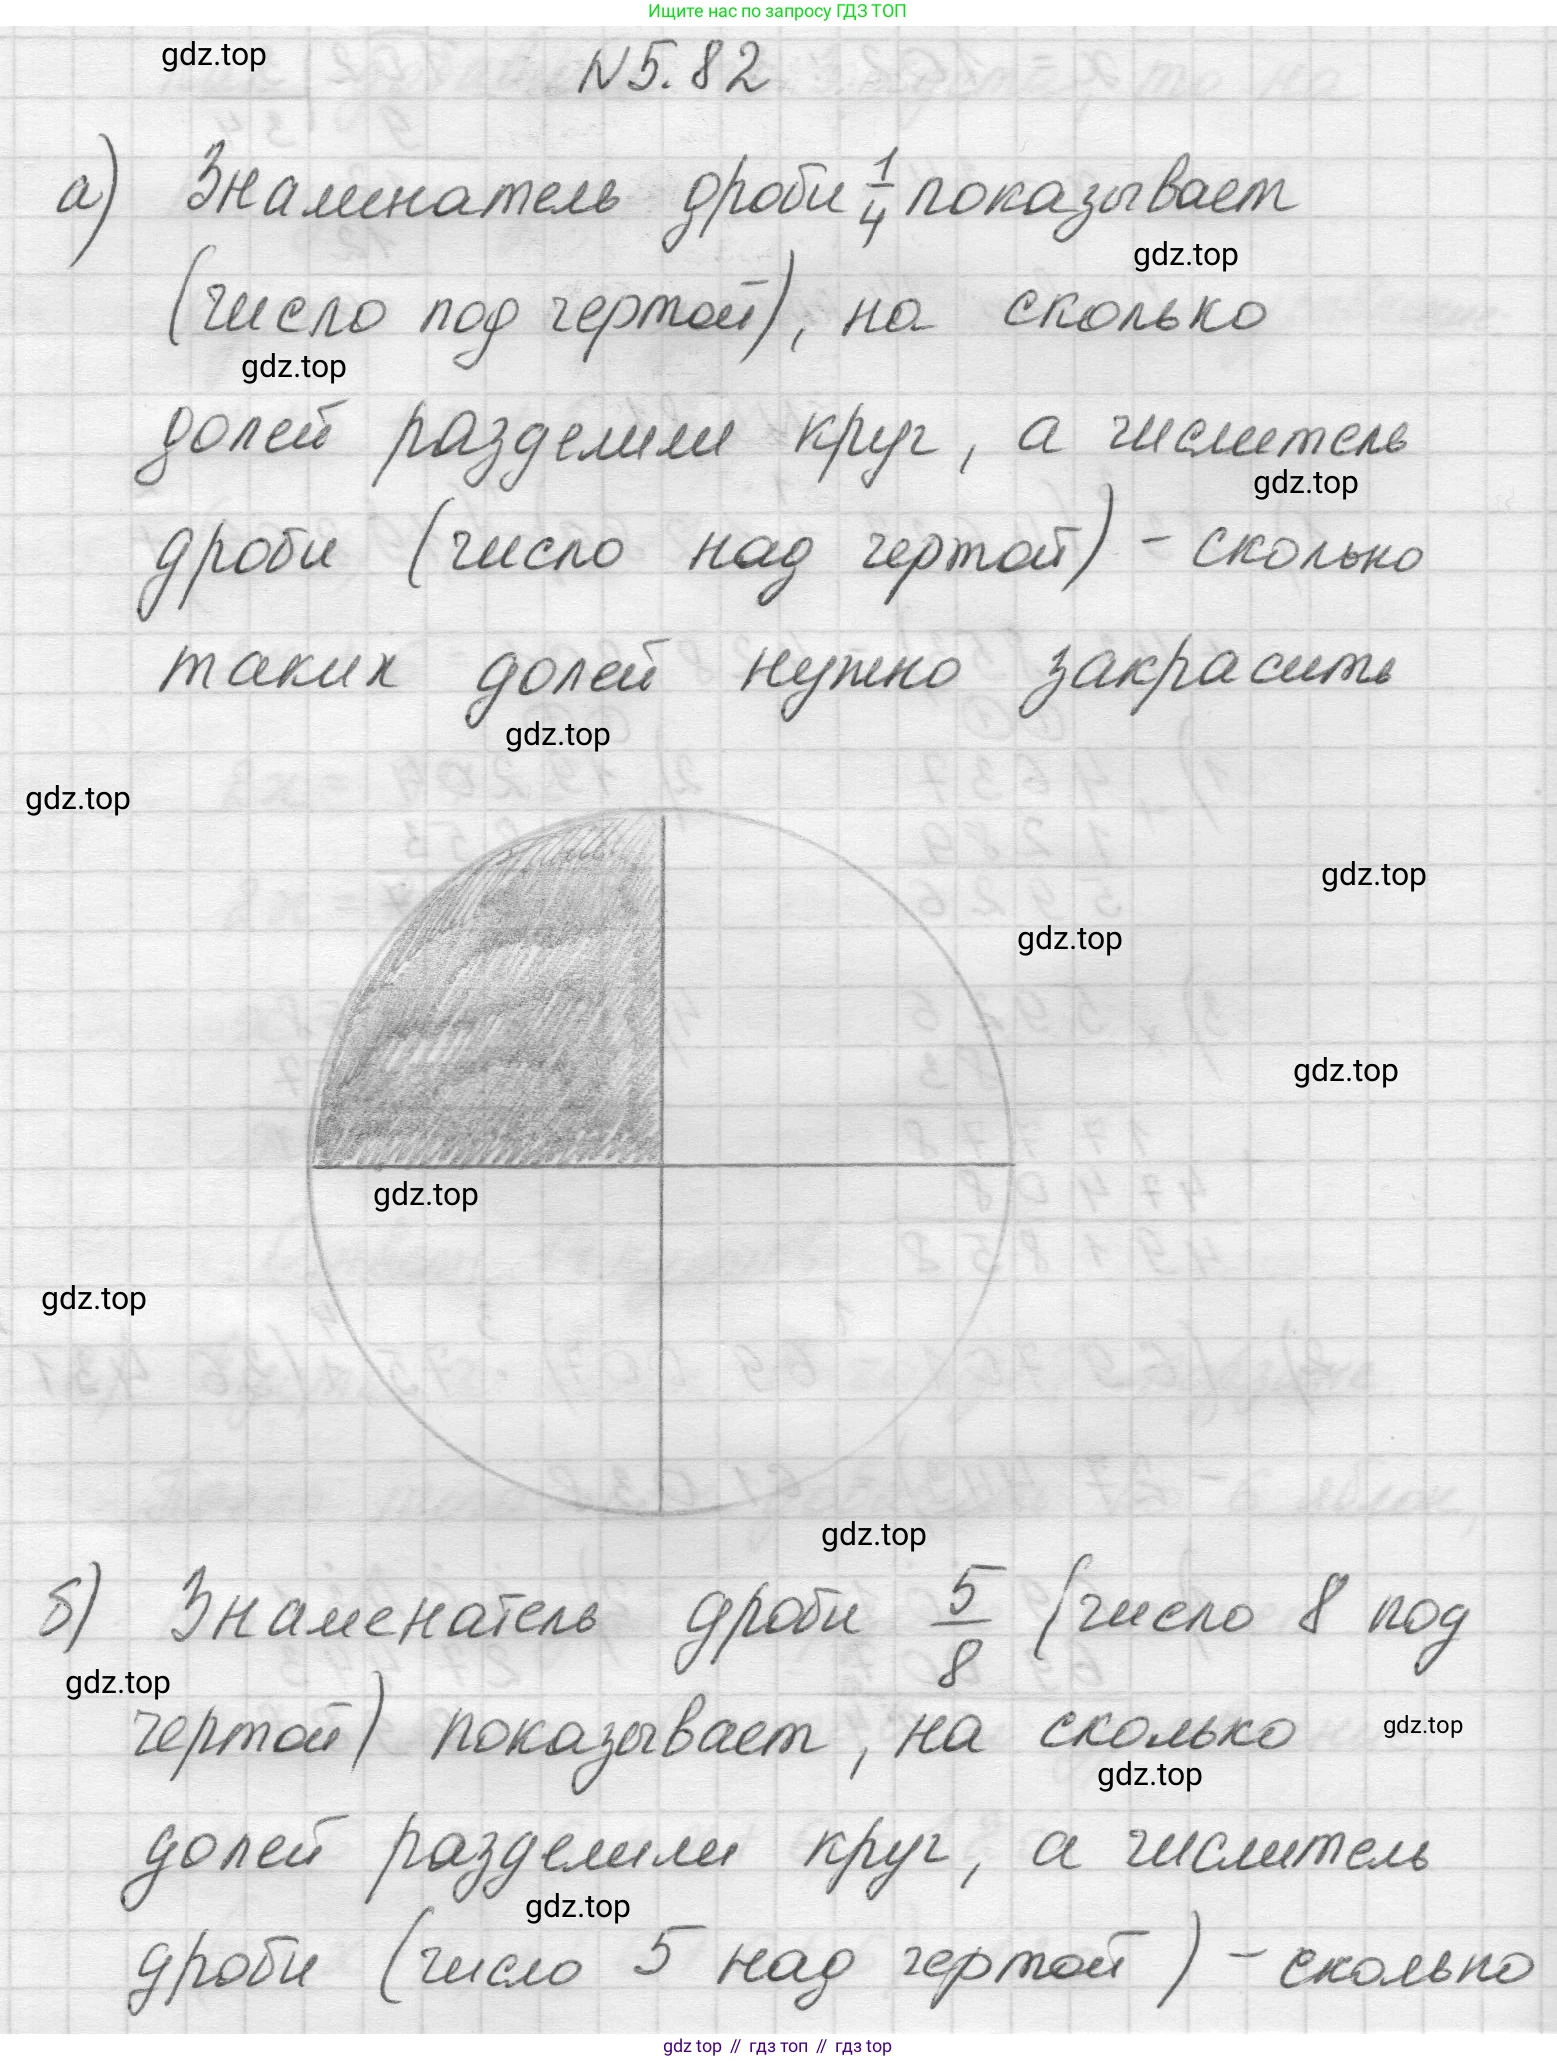 Ищите нас по запросу ГДЗ ТОП
gdz.top
N 5.82
а) Знаменатель дроби 1/4 показывает
gdz.top
(число под чертой), на сколько
gdz.top
долей разделили круг, а числитель
gdz.top
дроби (число над чертой) - сколько
таких долей нужно закрасить
gdz.top
gdz.top
gdz.top
gdz.top
gdz.top
gdz.top
gdz.top
gdz.top
б) Знаменатель дроби 5/8 (число 8 под
gdz.top
чертой) показывает, на сколько
gdz.top
gdz.top
долей разделили круг, а числитель
gdz.top
дроби (число 5 над чертой) - сколько
gdz top // гдз топ // гдз top